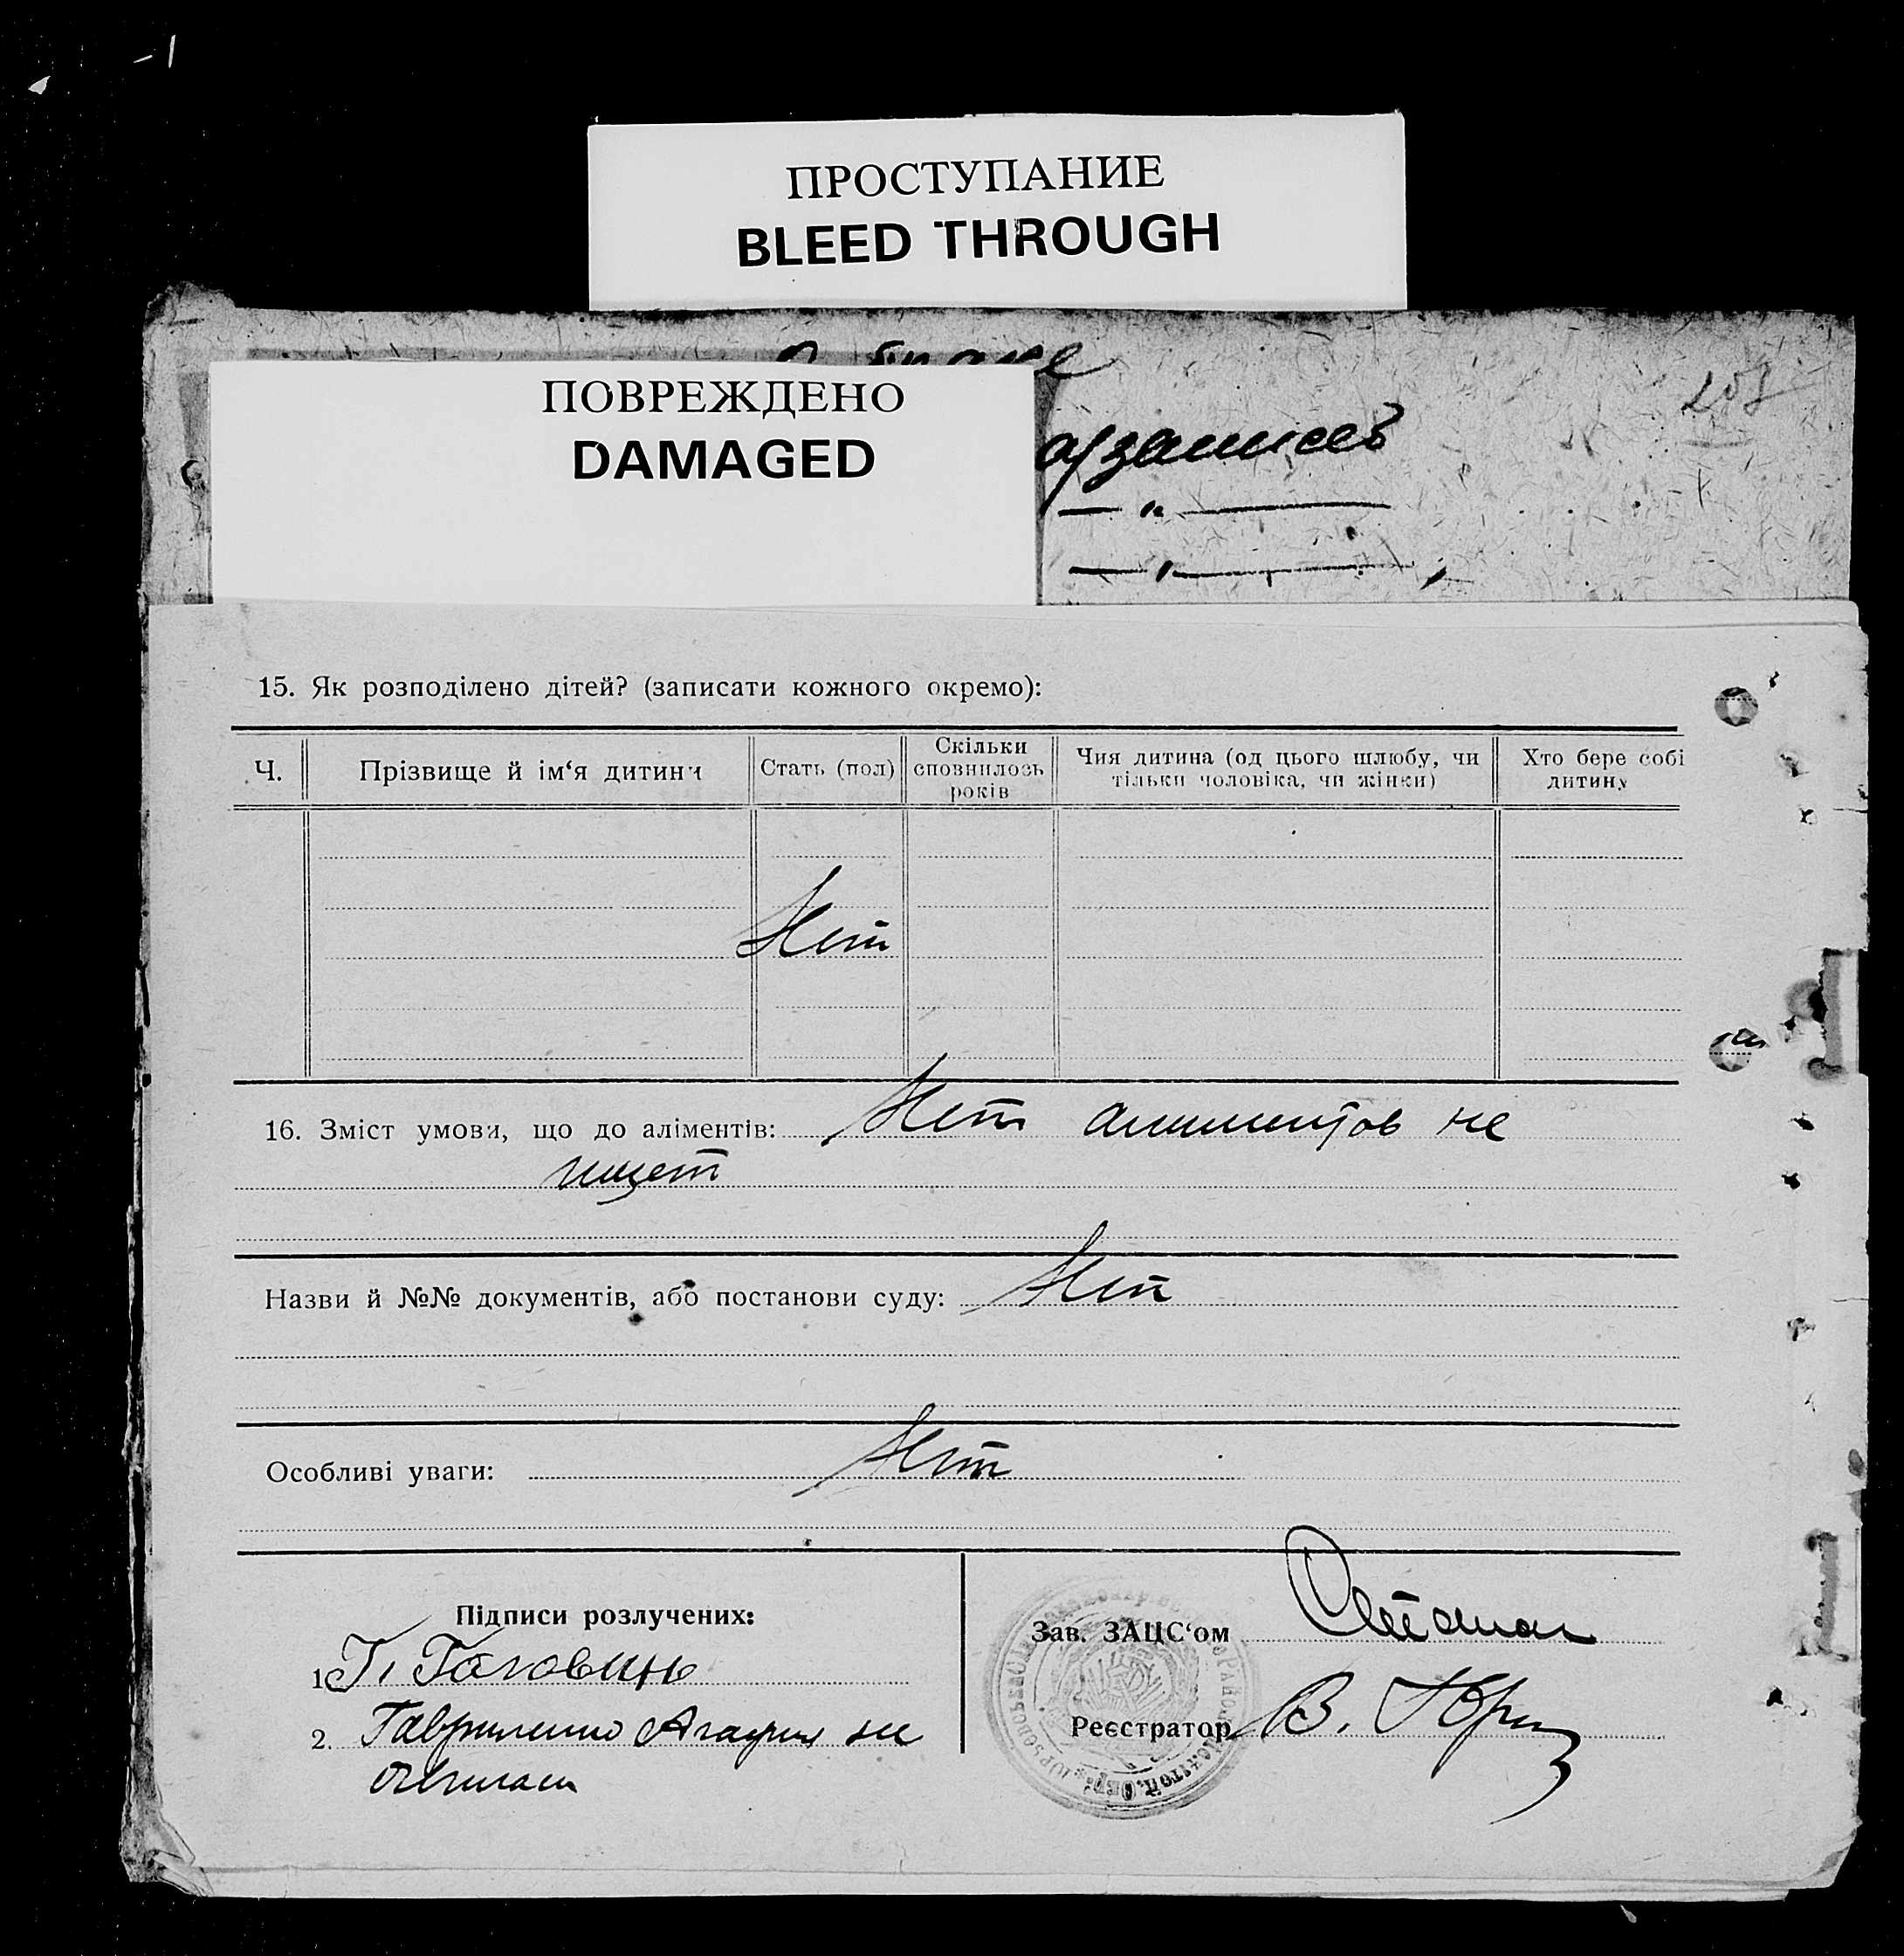 ПРОСТУПАНИЕ
BLEED THROUGH
ПОВРЕЖДЕНО
DAMAGED
15. Як розподілено дітей? (записати кожного окремо):
Ч.
Прізвище й ім‘я дитини
Стать (пол)
Скільки сповнилось років
Чия дитина (од цього шлюбу, чи тільки чоловіка, чи жінки)
Хто бере собі дитину
Нет
16. Зміст умови, що до аліментів: Нет алиментов не
ищет
Назви й №№ документів, або постанови суду: Нет
Особливі уваги: Нет
Підписи розлучених:
1.
2. Гавриленко Агафия не
Зав. ЗАЦС‘ом
Реєстратор В.